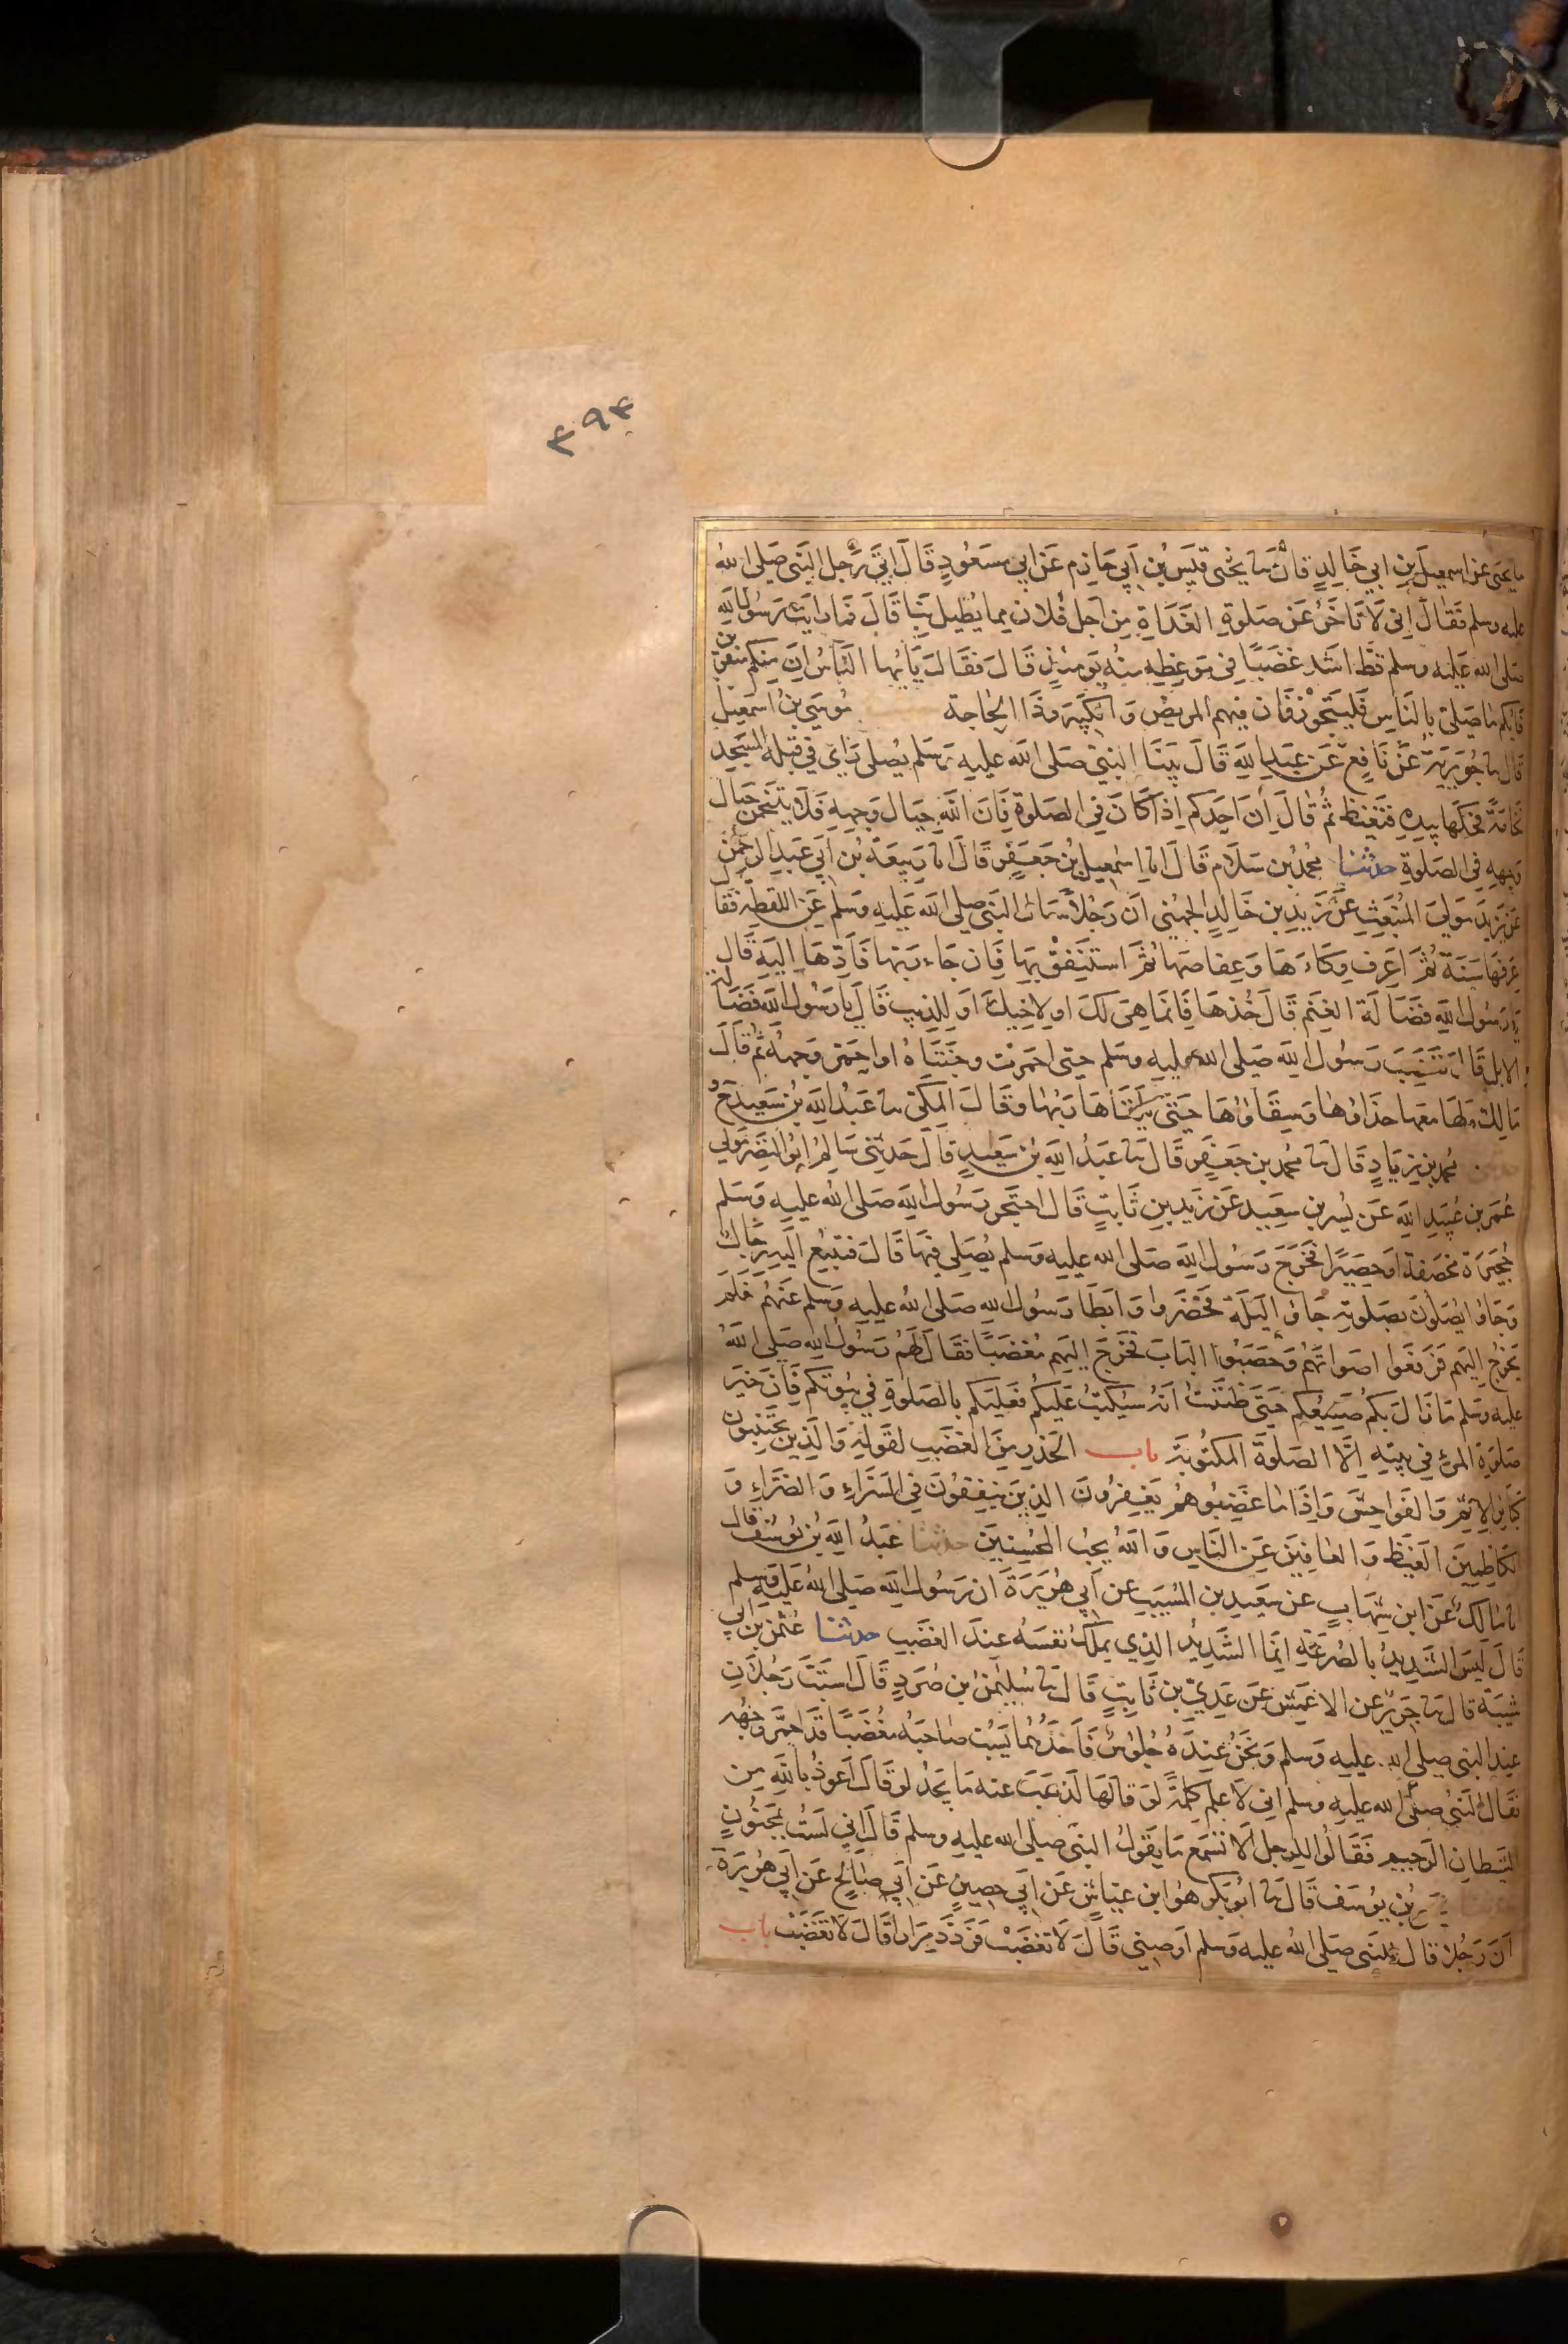 ٣٩٤
نا يحيى عن اسمعيل بن ابي خالد قال نا يحيى قيس بن ابي حازم عن ابي مسعود قال اتى رجل النبي صلى الله
عليه وسلم فقال اني لا تاخر عن صلوة الغداة من اجل فلان مما يطيل بنا قال فما رايت رسول الله
صلى الله عليه وسلم قط اشد غضبا في موعظه منه يومئذ قال فقال يايها الناس ان منكم منفرين
فايكم ما صلى بالناس فليتجوز فان فيهم المريض والكبير وذا الحاجة موسى بن اسمعيل
قال نا جويرية عن نافع عن عبد الله قال بينا النبي صلى الله عليه وسلم يصلي راى في قبلة المسجد
نخامة فحكها بيده فتغيظ ثم قال ان احدكم اذا كان في الصلوة فان الله حيال وجهه فلا يتنخمن حيال
وجهه في الصلوة حدثنا محمد بن سلام قال انا اسمعيل بن جعفر قال انا ربيعة بن ابي عبد الرحمن
عن يزيد مولى المنبعث عن زيد بن خالد الجهني ان رجلا سال النبي صلى الله عليه وسلم عن اللقطة فقال
عرفها سنة ثم اعرف وكاءها وعفاصها ثم استنفق بها فان جاء ربها فادها اليه قال
يا رسول الله فضالة الغنم قال خذها فانما هي لك او لاخيك او للذيب قال يا رسول الله فضالة
الابل قال فغضب رسول الله صلى الله عليه وسلم حتى احمرت وجنتاه او احمر وجهه ثم قال
مالك ولها معها حذاؤها وسقاؤها حتى يلقاها ربها وقال المكي نا عبد الله بن سعيد ح و
حدثني محمد بن زياد قال نا محمد بن جعفر قال نا عبد الله بن سعيد قال حدثني سالم ابو النضر مولى
عمر بن عبيد الله عن بسر بن سعيد عن زيد بن ثابت قال احتجر رسول الله صلى الله عليه وسلم
حجيرة مخصفة او حصيرا فخرج رسول الله صلى الله عليه وسلم يصلي فيها قال فتتبع اليه رجال
وجاؤا يصلون بصلوته جاؤا ليلة فحضروا وابطا رسول الله صلى الله عليه وسلم عنهم فلم
يخرج اليهم فرفعوا اصواتهم وحصبوا الباب فخرج اليهم مغضبا فقال لهم رسول الله صلى الله
عليه وسلم ما زال بكم صنيعكم حتى ظننت انه سيكتب عليكم فعليكم بالصلوة في بيوتكم فان خير
صلوة المرء في بيته الا الصلوة المكتوبة باب الحذر من الغضب لقوله والذين يجتنبون
كبائر الاثم والفواحش واذا ما غضبوا هم يغفرون الذين ينفقون في السراء والضراء و
الكاظمين الغيظ والعافين عن الناس والله يحب المحسنين حدثنا عبد الله بن يوسف قال
انا مالك عن ابن شهاب عن سعيد بن المسيب عن ابي هريرة ان رسول الله صلى الله عليه وسلم
قال ليس الشديد بالصرعة انما الشديد الذي يملك نفسه عند الغضب حدثنا عثمن بن ابي
شيبة قال نا جرير عن الاعمش عن عدي بن ثابت قال نا سليمن بن صرد قال استب رجلان
عند النبي صلى الله عليه وسلم ونحن عنده جلوس فاحدهما يسب صاحبه مغضبا قد احمر وجهه
فقال النبي صلى الله عليه وسلم اني لاعلم كلمة لو قالها لذهب عنه ما يجد لو قال اعوذ بالله من
الشيطان الرجيم فقالوا للرجل الا تسمع ما يقول النبي صلى الله عليه وسلم قال اني لست بمجنون
بن يوسف قال نا ابو بكر هو ابن عياش عن ابي حصين عن ابي صالح عن ابي هريرة
ان رجلا قال للنبي صلى الله عليه وسلم اوصيني قال لا تغضب فردد مرارا قال لا تغضب باب